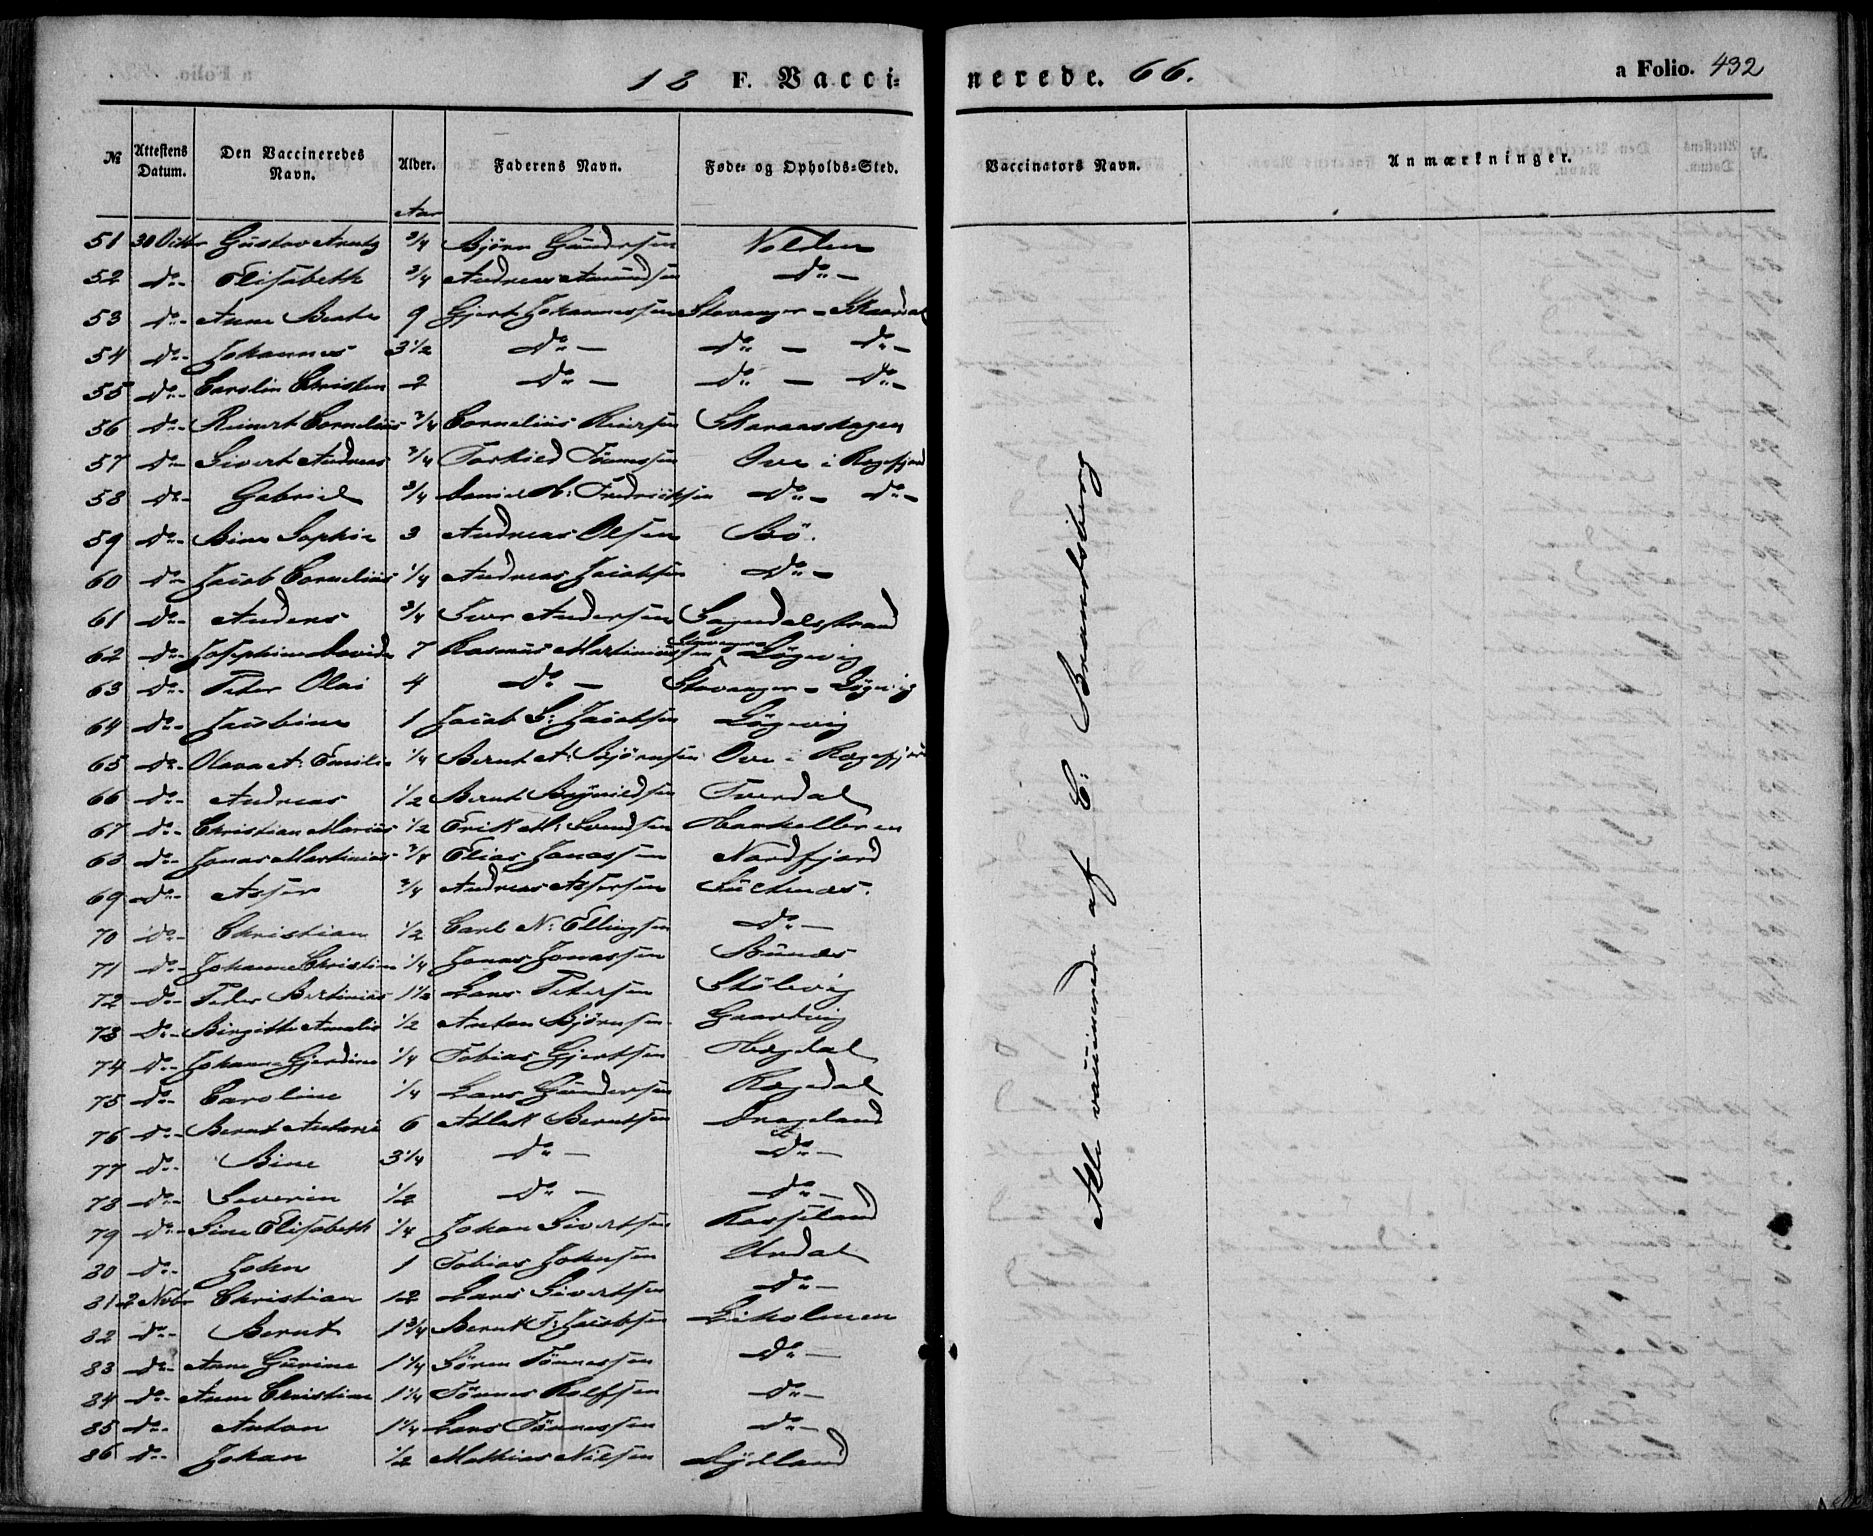 18 F. Vacci=nerede. 66. a Folio. 432
№ Attestens Datum. Den Vaccineredes Navn. Alder. Faderens Navn. Føde= og Opholds=Sted. Vaccinators Navn. Anmærkninger.
Aar
51 30 Octbr Gustav Arntz 3/4 Bjørn Gundersen Nolden
52 Do- Elisabeth 3/4 Andreas Amundsen Do-
53 Do- Anne Beate 9 Gjert Johannessen Stavanger - Skaardal
54 Do- Johannes 3 1/2 Do- Do- Do-
55 Do- Carolin Christen 2 Do- Do- Do-
56 Do- Reinert Cornelius 3/4 Cornelius Reiersen
57 Do- Sivert Andreas 3/4 Torkild Tønnessen Ove i Regefjord
58 Do- Gabriel 3/4 Daniel H: Fredriksen Do- Do-
59 Do- Bine Sophie 3 Andreas Olsen Bö.
60 Do- Jacob Cornelius 1/4 Andreas Jacobsen Do-
61 Do- Anders 3/4 Iver Andersen Sogndalsstrand
62 Do- Josephine Davida 7 Rasmus Martiniussen Stavanger Løgevig
63 Do- Peter Olai 4 Do- Stavanger - Løgevig
64 Do- Jacobine 1 Jacob S: Jacobsen Løgevig
65 Do- Olava A: Emilie 1/4 Bernt A: Bjørnsen Ove i Regefjord
66 Do- Andreas 1/2 Bernt Bøgvildsen Tverdal
67 Do- Christian Marius 1/2 Erik M: Svendsen
68 Do- Jonas Martinius 3/4 Elias Jonassen Nordfjord
69 Do- Asser 3/4 Andreas Assersen
70 Do- Christian 1/2 Carl N: Ellingsen Do-
71 Do- Johanne Christine 1/4 Jonas Jonassen
72 Do- Peder Bertinius 1 1/2 Lars Petersen Stölevig
73 Do- Birgitte Amalie 1/2 Anton Bjørnsen Gaardvig
74 Do- Johanne Gjerdine 1/4 Tobias Gjertsen Hegdal
75 Do- Caroline 1/4 Lars Gundersen Regedal
76 Do- Bernt Antoni 6 Atlak Berntsen Drageland
77 Do- Bine 3 1/4 Do- Do-
78 Do- Severin 1/2 Do- Do-
79 Do- Sine Elisabeth 1/4 Johan Sivertsen Rosseland
80 Do- John 1 Tobias Johnsen Urdal
81 2 Nvbr Christian 12 Lars Sivertsen Do-
82 Do- Bernt 1 3/4 Bernt T: Jacobsen Liholmen
83 Do- Anne Gurine 1 1/4 Sören Tønnessen Do-
84 Do- Anne Christine 1 1/4 Tønnes Rolfsen Do-
85 Do- Anton 1 1/4 Lars Tønnessen Do-
86 Do- Johan 1/2 Mathias Nilsen Lydland
Alle vaccinerede af C: Bramdsberg